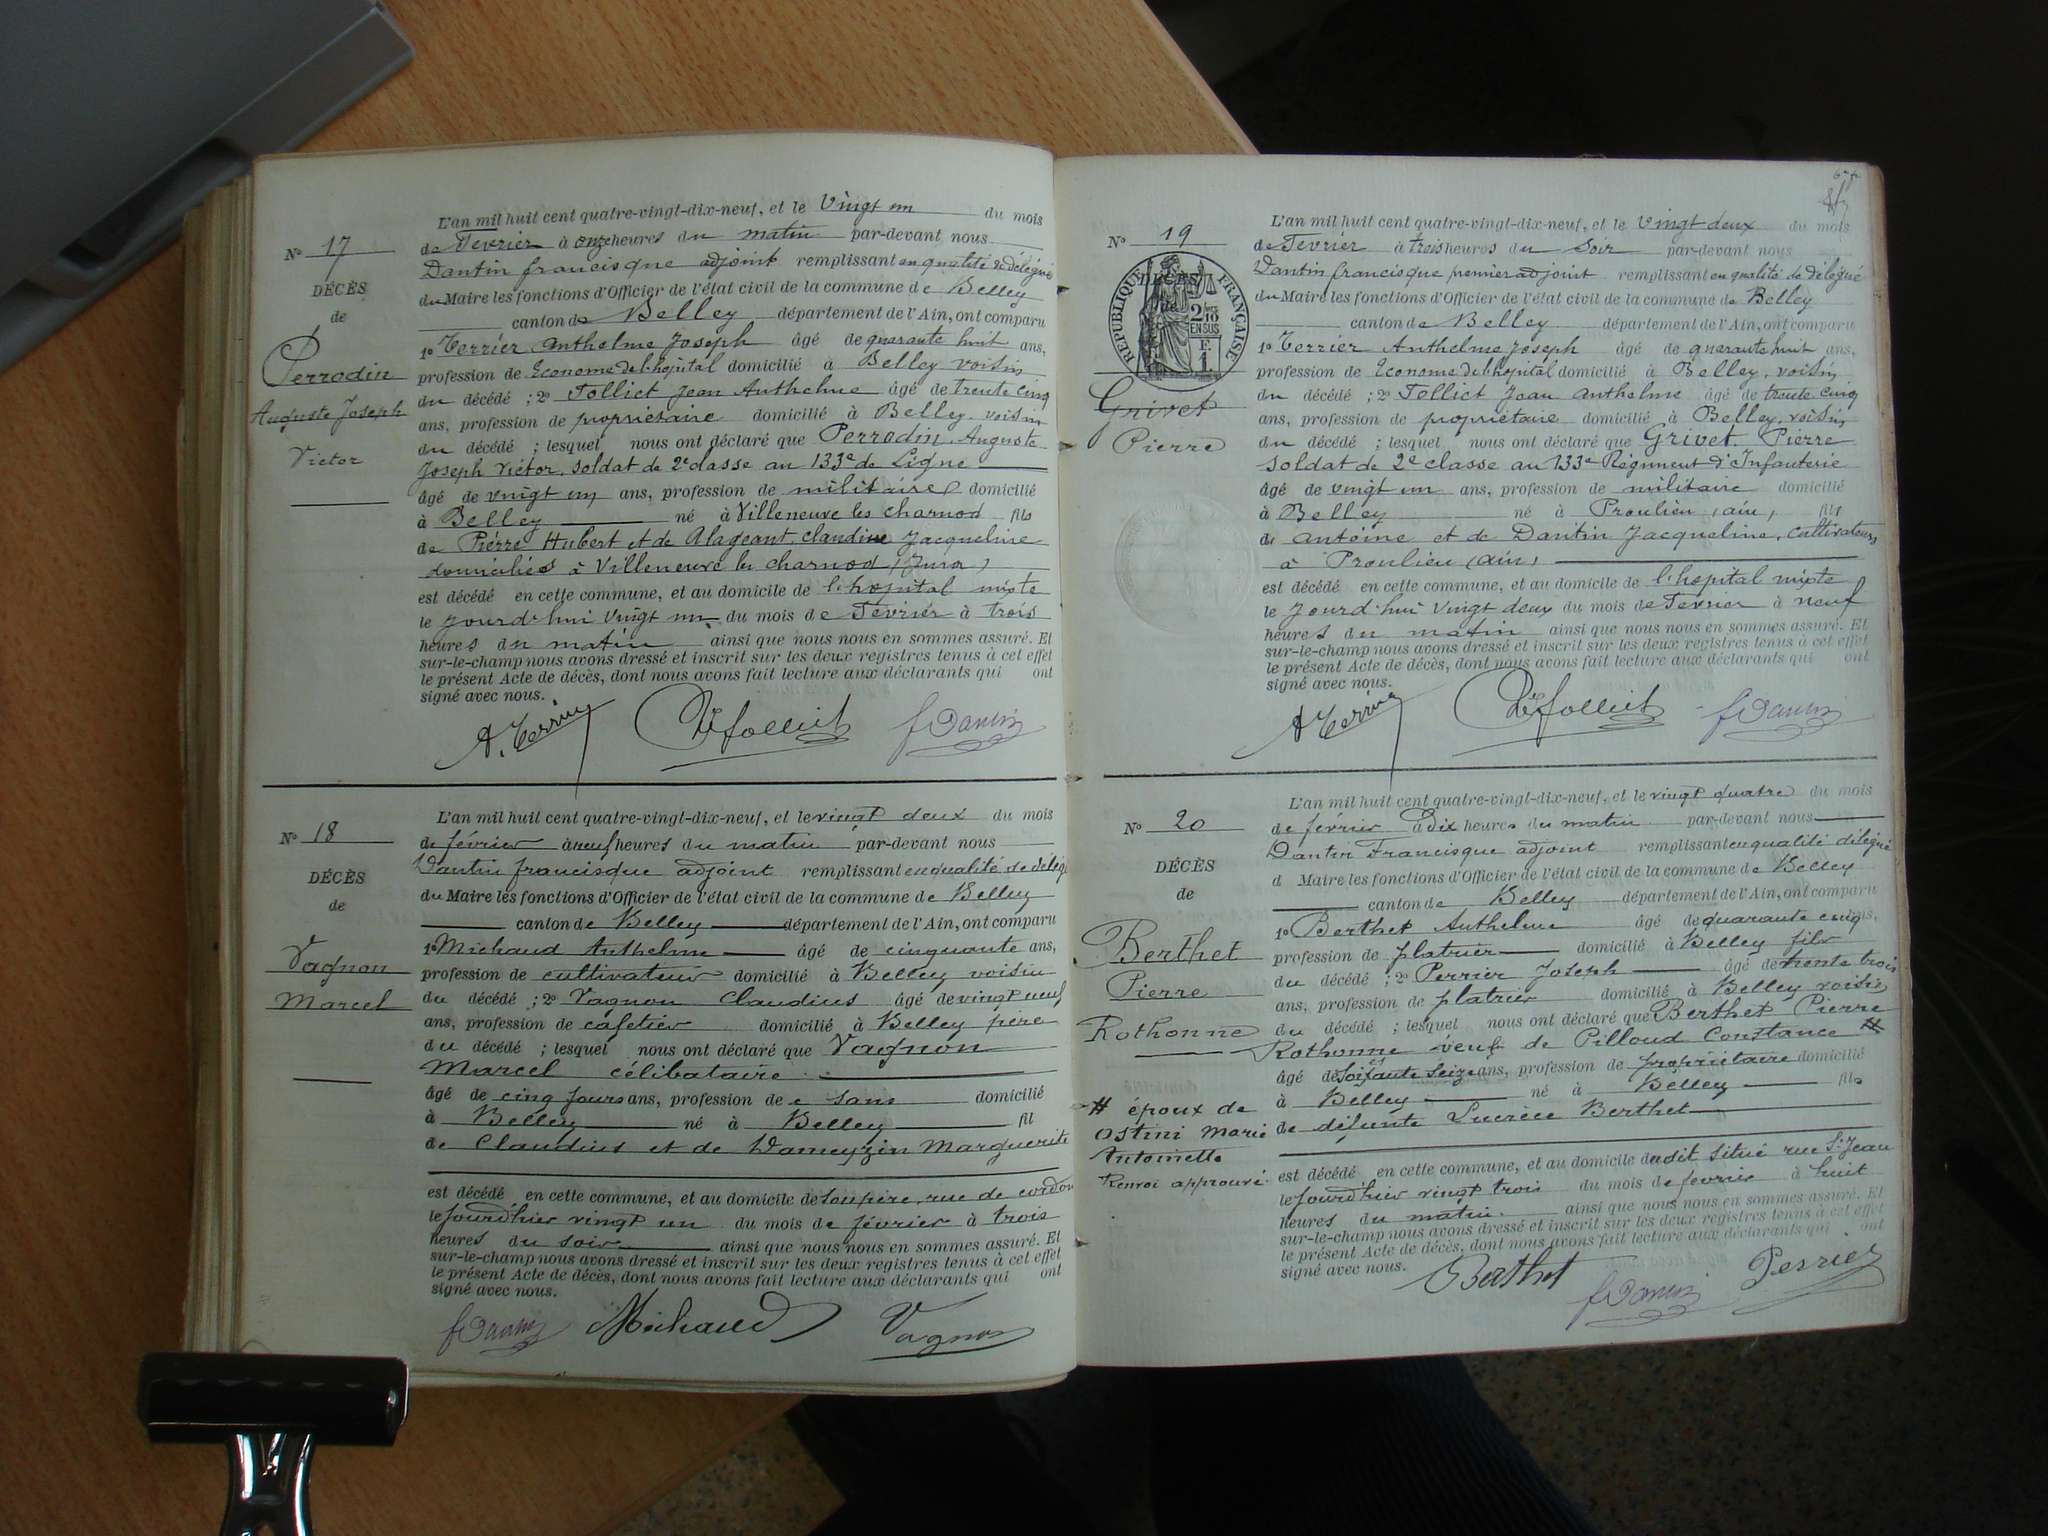 N° 17
DÉCÈS
de
Perrodin
Auguste Joseph
Victor
L'an mil huit cent quatre-vingt-dix-neuf, et le Vingt un du mois
de Fevrier à onze heures du matin par-devant nous
Dantin francisque adjoint remplissant en qualité de délégué
du Maire les fonctions d'Officier de l'état civil de la commune de Belley
canton de Belley département de l'Ain, ont comparu
1° Terrier Anthelme Joseph âgé de quarante huit ans,
profession de Econome de l'hopital domicilié à Belley voisin
du décédé ; 2° Folliet Jean Anthelme âgé de trente cinq
ans, profession de propriétaire domicilié à Belley voisin
du décédé ; lesquel nous ont déclaré que Perrodin, Auguste
Joseph Victor, soldat de 2e classe au 133e de Ligne
âgé de vingt un ans, profession de militaire domicilié
à Belley né à Villeneuve les charnod fils
de Pierre Hubert et de Alageant, claudine Jacqueline
domiciliés à Villeneuve les charnod (Jura)
est décédé en cette commune, et au domicile de l'hopital mixte
le jourd'hui Vingt un du mois de Fevrier à trois
heures du matin ainsi que nous nous en sommes assuré. Et
sur-le-champ nous avons dressé et inscrit sur les deux registres tenus à cet effet
le présent Acte de décès, dont nous avons fait lecture aux déclarants qui ont
signé avec nous.
A. Terrier Folliet f Dantin
N° 18
DÉCÈS
de
Vagnon
Marcel
L'an mil huit cent quatre-vingt-dix-neuf, et le vingt deux du mois
de février à neuf heures du matin par-devant nous
Dantin francisque adjoint remplissant en qualité de délég
du Maire les fonctions d'Officier de l'état civil de la commune de Belley
canton de Belley département de l'Ain, ont comparu
1° Michaud Anthelme âgé de cinquante ans,
profession de cultivateur domicilié à Belley voisin
du décédé ; 2° Vagnon Claudius âgé de vingt neuf
ans, profession de cafetier domicilié à Belley père
du décédé ; lesquel nous ont déclaré que Vagnon
Marcel célibataire
âgé de cinq jours ans, profession de e sans domicilié
à Belley né à Belley fil
de Claudius et de Dameyzin Marguerite
est décédé en cette commune, et au domicile de son père, rue de cordon
le jourd'hier vingt un du mois de février à trois
heures du soir ainsi que nous nous en sommes assuré. Et
sur-le-champ nous avons dressé et inscrit sur les deux registres tenus à cet effet
le présent Acte de décès, dont nous avons fait lecture aux déclarants qui ont
signé avec nous.
f Dantin Michaud Vagnon
N° 19
RÉPUBLIQUE FRANÇAISE
DÉCÈS
de
2/10 EN SUS
F. 1
Grivet
Pierre
L'an mil huit cent quatre-vingt-dix-neuf, et le vingt deux du mois
de Fevrier à trois heures du soir par-devant nous
Dantin francisque premier adjoint remplissant en qualité de délégué
du Maire les fonctions d'Officier de l'état civil de la commune de Belley
canton de Belley département de l'Ain, ont comparu
1° Terrier Anthelme Joseph âgé de quarante huit ans,
profession de Econome de l'hopital domicilié à Belley, voisin
du décédé ; 2° Folliet Jean Anthelme âgé de trente cinq
ans, profession de propriétaire domicilié à Belley, voisin
du décédé ; lesquel nous ont déclaré que Grivet, Pierre
soldat de 2e classe au 133e Régiment d'Infanterie
âgé de vingt un ans, profession de militaire domicilié
à Belley né à Proulieu (ain) fils
de antoine et de Dantin Jacqueline, cultivateurs
à Proulieu (ain)
est décédé en cette commune, et au domicile de l'hopital mixte
le jourd'hui vingt deux du mois de Fevrier à neuf
heures du matin ainsi que nous nous en sommes assuré. Et
sur-le-champ nous avons dressé et inscrit sur les deux registres tenus à cet effet
le présent Acte de décès, dont nous avons fait lecture aux déclarants qui ont
signé avec nous.
A Terrier Folliet f Dantin
N° 20
DÉCÈS
de
Berthet
Pierre
Rothonne
# époux de
Ostini Marie
Antoinette
Renvoi approuvé
L'an mil huit cent quatre-vingt-dix-neuf, et le vingt quatre du mois
de février à dix heures du matin par-devant nous
Dantin Francisque adjoint remplissant en qualité délégué
d Maire les fonctions d'Officier de l'état civil de la commune de Belley
canton de Belley département de l'Ain, ont comparu
1° Berthet Anthelme âgé de quarante cinq ans,
profession de platrier domicilié à Belley fils
du décédé ; 2° Perrier Joseph âgé de trente trois
ans, profession de platrier domicilié à Belley voisin
du décédé ; lesquel nous ont déclaré que Berthet Pierre
Rothonne veuf de Pilloud Constance #
âgé de soixante seize ans, profession de propriétaire domicilié
à Belley né à Belley fils
de défunte Lucrèce Berthet
est décédé en cette commune, et au domicile du dit situé rue St Jean
le jourd'hier vingt trois du mois de fevrier à huit
heures du matin ainsi que nous nous en sommes assuré. Et
sur-le-champ nous avons dressé et inscrit sur les deux registres tenus à cet effet
le présent Acte de décès, dont nous avons fait lecture aux déclarants qui ont
signé avec nous.
Berthet f Dantin Perrier